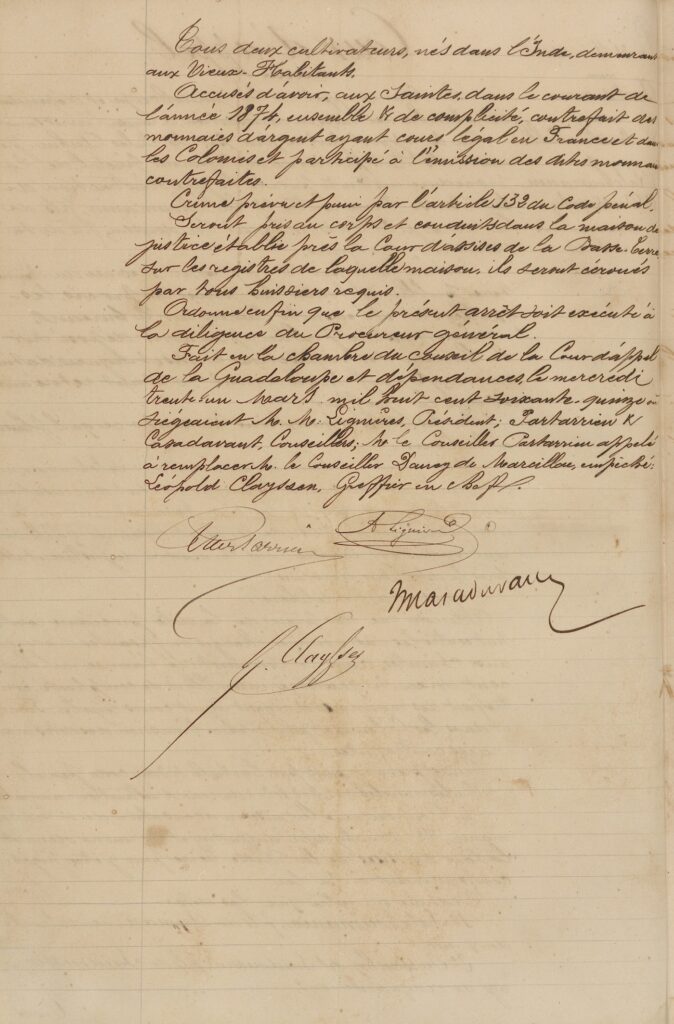 Tous deux cultivateurs, nés dans l'Inde, demeurant
aux Vieux-Habitants.
Accusés d'avoir, aux Saintes, dans le courant de
l'année 1874, ensemble & de complicité, contrefait des
monnaies d'argent ayant cours légal en France et dans
les Colonies et participé à l'émission des dites monnaies
contrefaites.
Crime prévu et puni par l'article 132 du Code pénal.
Seront pris au corps et conduits dans la maison de
justice établie près la Cour d'assises de la Basse-Terre
sur les registres de laquelle maison, ils seront écroués
par tous huissiers requis.
Ordonne enfin que le présent arrêt soit exécuté à
la diligence du Procureur général.
Fait en la chambre du conseil de la Cour d'appel
de la Guadeloupe et dépendances, le mercredi
trente un Mars mil huit cent soixante-quinze où
siégeaient M. M. Lignières, Président; Partarrieu &
Casadavant, Conseillers; M. le Conseiller Partarrieu appelé
à remplacer M. le Conseiller de Mareillac, empêché.
Léopold Clayssen, Greffier en chef.
Partarrieu
A Lignières
L. Clayssen